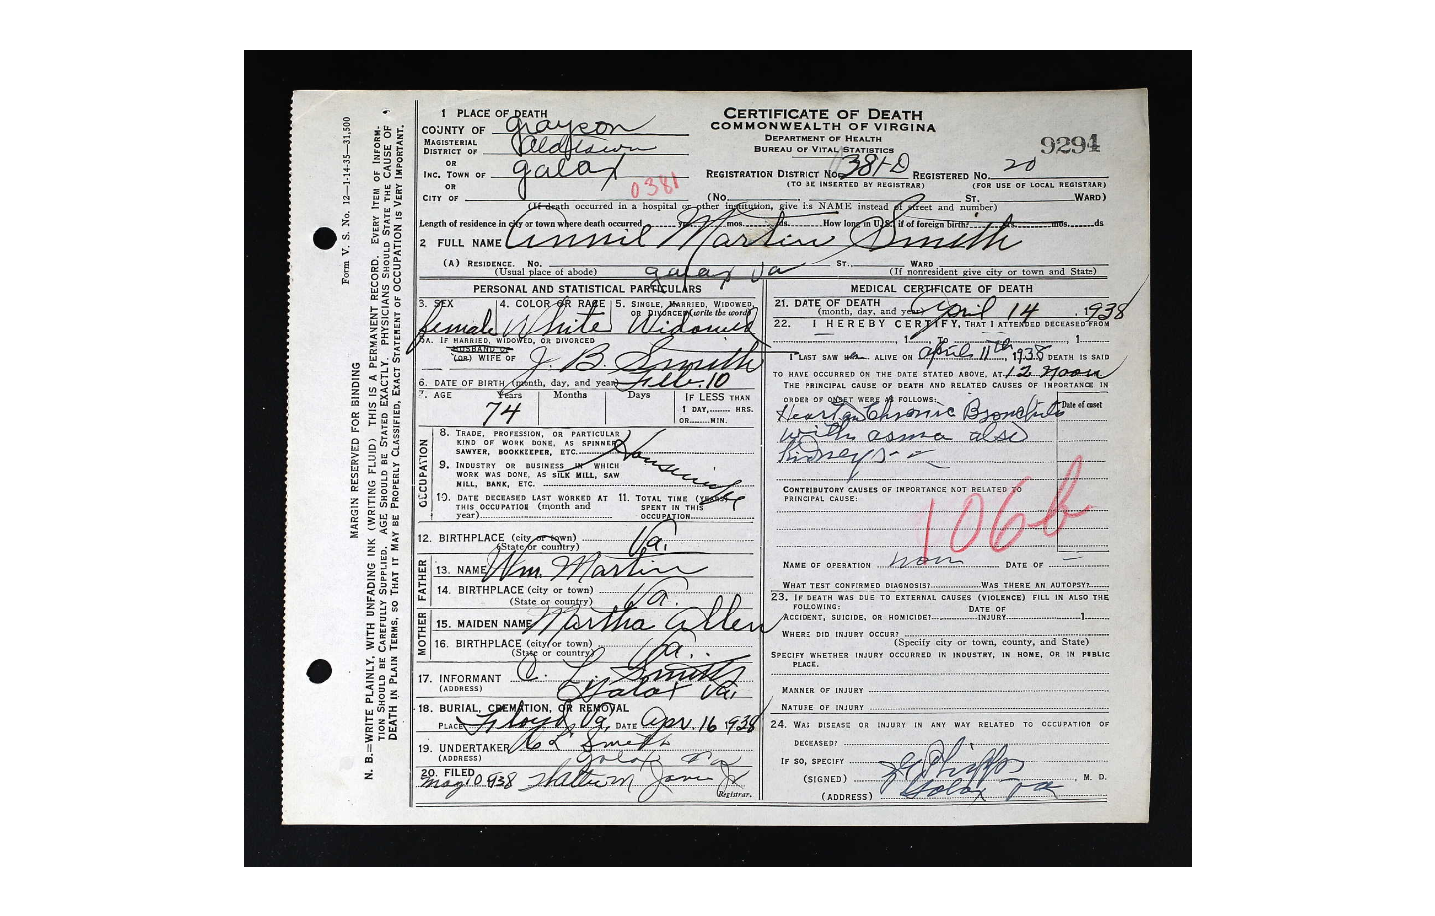 Form V. S. No. 12—1-14-35—31,500
MARGIN RESERVED FOR BINDING
N. B.—WRITE PLAINLY, WITH UNFADING INK (WRITING FLUID) THIS IS A PERMANENT RECORD. EVERY ITEM OF INFORM-
TION SHOULD BE CAREFULLY SUPPLIED. AGE SHOULD BE STATED EXACTLY. PHYSICIANS SHOULD STATE THE CAUSE OF
DEATH IN PLAIN TERMS, SO THAT IT MAY BE PROPERLY CLASSIFIED, EXACT STATEMENT OF OCCUPATION IS VERY IMPORTANT.
CERTIFICATE OF DEATH
COMMONWEALTH OF VIRGINIA
DEPARTMENT OF HEALTH
BUREAU OF VITAL STATISTICS
9294
1 PLACE OF DEATH
COUNTY OF Grayson
MAGISTERIAL
DISTRICT OF Oldtown
OR
INC. TOWN OF Galax
OR
CITY OF
0381
REGISTRATION DISTRICT NO. 381-D REGISTERED NO. 20
(TO BE INSERTED BY REGISTRAR) (FOR USE OF LOCAL REGISTRAR)
(No. ST. WARD)
(If death occurred in a hospital or other institution, give its NAME instead of street and number)
Length of residence in city or town where death occurred yrs. mos. ds. How long in U.S. if of foreign birth? yrs. mos. ds
2 FULL NAME Annie Martin Smith
(A) RESIDENCE. No. Galax Va ST., WARD
(Usual place of abode) (If nonresident give city or town and State)
PERSONAL AND STATISTICAL PARTICULARS
3. SEX female
4. COLOR OR RACE White
5. SINGLE, MARRIED, WIDOWED,
OR DIVORCED (write the word) Widowed
5A. IF MARRIED, WIDOWED, OR DIVORCED
HUSBAND OF
(OR) WIFE OF J. B. Smith
6. DATE OF BIRTH (month, day, and year) Feb. 10
7. AGE Years Months Days IF LESS THAN
74 1 DAY, HRS.
OR MIN.
OCCUPATION
8. TRADE, PROFESSION, OR PARTICULAR
KIND OF WORK DONE, AS SPINNER
SAWYER, BOOKKEEPER, ETC. Housewife
9. INDUSTRY OR BUSINESS IN WHICH
WORK WAS DONE, AS SILK MILL, SAW
MILL, BANK, ETC.
10. DATE DECEASED LAST WORKED AT
THIS OCCUPATION (month and
year)
11. TOTAL TIME (YEARS)
SPENT IN THIS
OCCUPATION
12. BIRTHPLACE (city or town)
(State or country) Va.
FATHER
13. NAME Wm. Martin
14. BIRTHPLACE (city or town)
(State or country) Va.
MOTHER
15. MAIDEN NAME Martha Allen
16. BIRTHPLACE (city or town)
(State or country) Va.
17. INFORMANT C. L. Smith
(ADDRESS) Galax Va.
18. BURIAL, CREMATION, OR REMOVAL
PLACE Floyd Va, DATE Apr. 16, 1938
19. UNDERTAKER Smith
(ADDRESS) Galax Va
20. FILED
May 10 1938
Registrar.
MEDICAL CERTIFICATE OF DEATH
21. DATE OF DEATH
(month, day, and year) April 14, 1938
22. I HEREBY CERTIFY, THAT I ATTENDED DECEASED FROM
, 1 , TO , 1
I LAST SAW H ALIVE ON April 11th, 1938 DEATH IS SAID
TO HAVE OCCURRED ON THE DATE STATED ABOVE, AT 12 Noon
THE PRINCIPAL CAUSE OF DEATH AND RELATED CAUSES OF IMPORTANCE IN
ORDER OF ONSET WERE AS FOLLOWS: Date of onset
Heart Chronic Bronchitis
with asma also
Kidneys
CONTRIBUTORY CAUSES OF IMPORTANCE NOT RELATED TO
PRINCIPAL CAUSE:
106b
NAME OF OPERATION none DATE OF —
WHAT TEST CONFIRMED DIAGNOSIS? WAS THERE AN AUTOPSY?
23. IF DEATH WAS DUE TO EXTERNAL CAUSES (VIOLENCE) FILL IN ALSO THE
FOLLOWING: DATE OF
ACCIDENT, SUICIDE, OR HOMICIDE? INJURY 1
WHERE DID INJURY OCCUR?
(Specify city or town, county, and State)
SPECIFY WHETHER INJURY OCCURRED IN INDUSTRY, IN HOME, OR IN PUBLIC
PLACE.
MANNER OF INJURY
NATURE OF INJURY
24. WAS DISEASE OR INJURY IN ANY WAY RELATED TO OCCUPATION OF
DECEASED?
IF SO, SPECIFY
(SIGNED) Phipps, M. D.
(ADDRESS) Galax Va